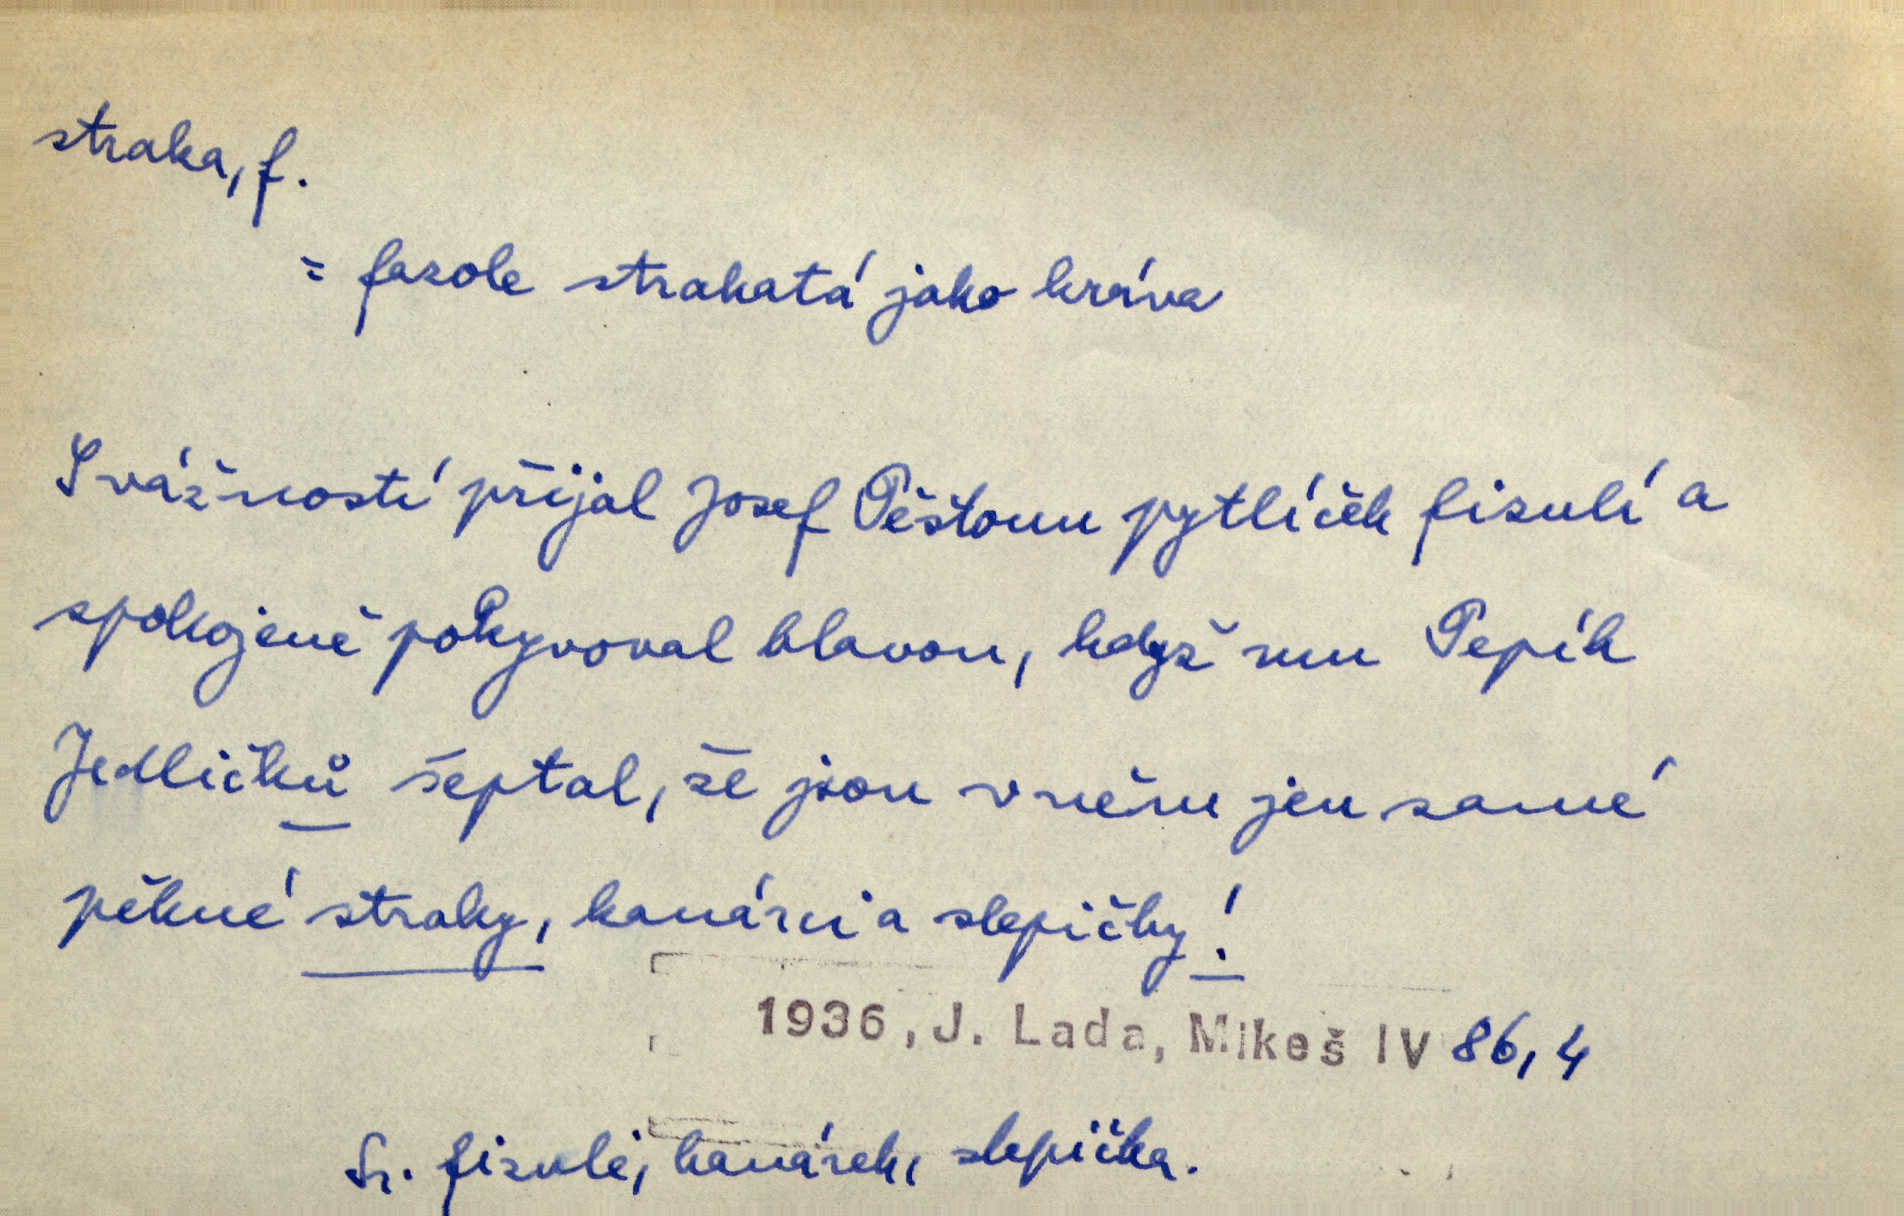 straka, f.
= fazole strakatá jako kráva
S vážností přijal Josef Pěštounu pytlíček fizulí a
spokojeně pokyvoval hlavou, když mu Pepík
Jedličků šeptal, že jsou v něm jen samé
pěkné straky, kanárci a slepičky!
1936, J. Lada, Mikeš IV 86, 4
Sr. fizule, kanárek, slepička.